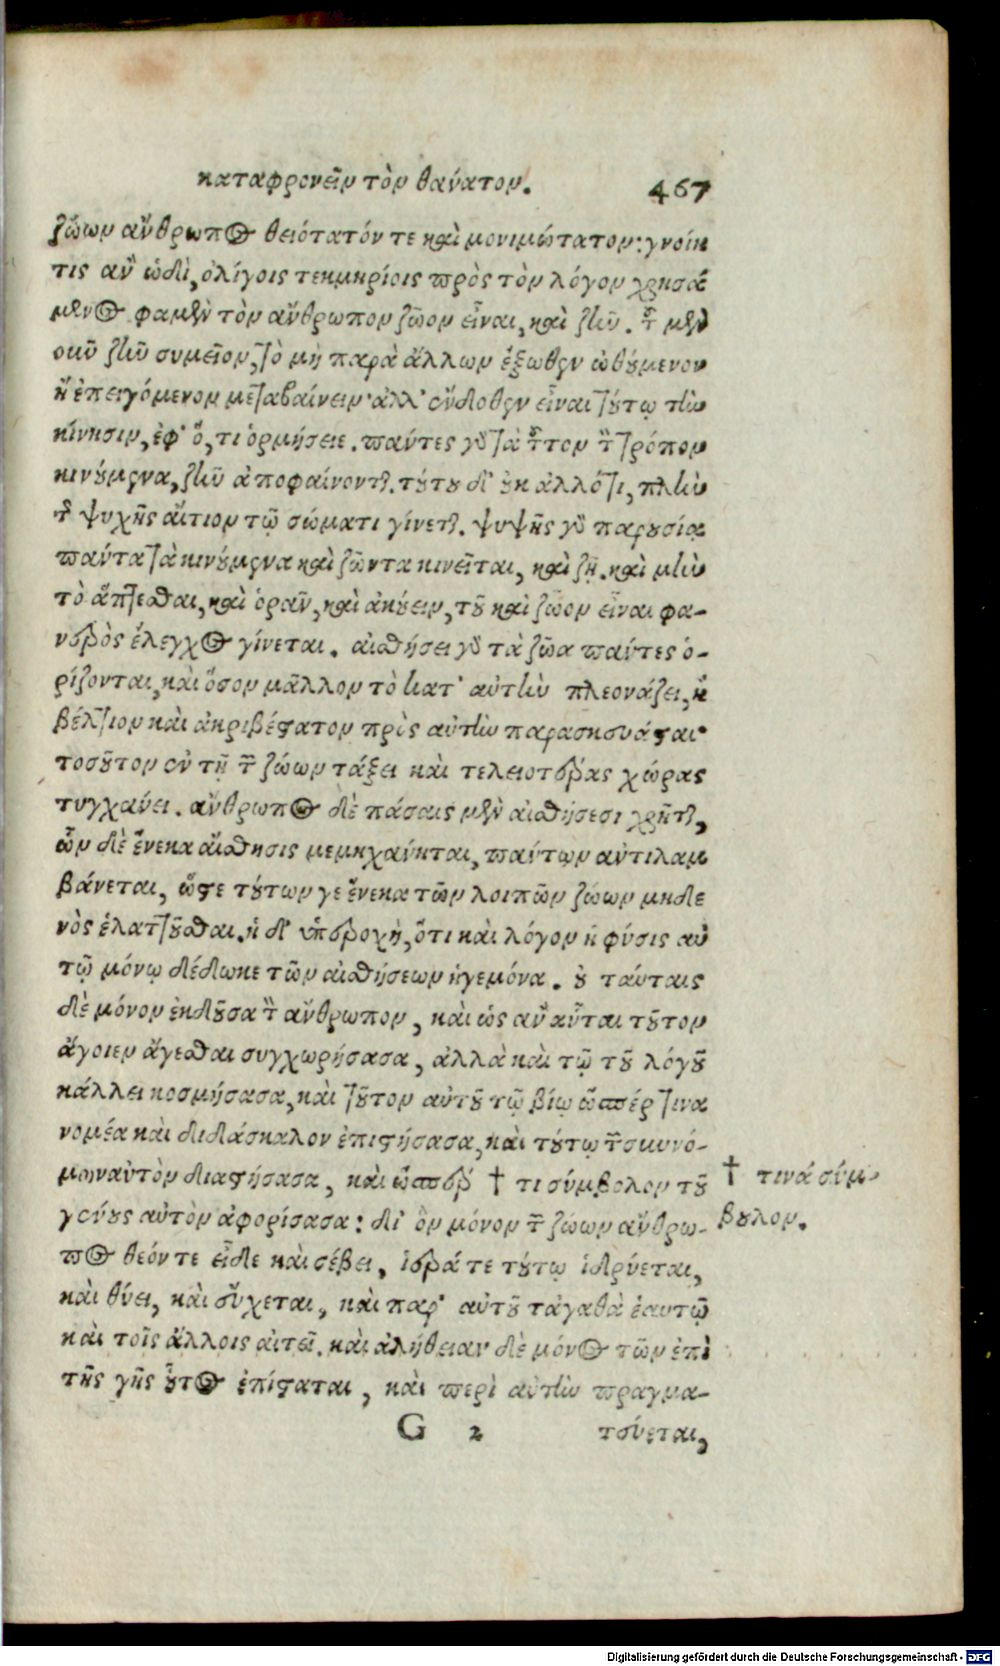 καταφρονεῖν τὸν θανάτον. 467
ζώων ἄνθρωπος θειότατόν τε καὶ μονιμώτατον: γνοίη
τις ἂν ὡδὶ, ὀλίγοις τεκμηρίοις πρὸς τὸν λόγον χρησά
μενος φαμὲν τὸν ἄνθρωπον ζῶον εἶναι, καὶ ζῆν. τοῦ μὲν
οὖν ζῆν σημεῖον, τὸ μὴ παρὰ ἄλλων ἔξωθεν ὠθούμενον
ἢ ἐπειγόμενον μεταβαίνειν· ἀλλ' ἔνδοθεν εἶναι τούτῳ τὴν
κίνησιν, ἐφ' ὅ, τι ὁρμήσειε. πάντες γὰρ τὰ τοῦτον τὸν τρόπον
κινούμενα, ζῆν ἀποφαίνονται. τούτου δ' οὐκ ἀλλό τι, πλὴν
τῆς ψυχῆς αἴτιον τῷ σώματι γίνεται. ψυψῆς γὰρ παρουσίᾳ
πάντα τὰ κινούμενα καὶ ζῶντα κινεῖται, καὶ ζῇ. καὶ μὴν
τὸ ἅπτεσθαι, καὶ ὁρᾶν, καὶ ἀκούειν, τοῦ καὶ ζῶον εἶναι φα-
νερὸς ἔλεγχος γίνεται. αἰσθήσει γὰρ τὰ ζῶα πάντες ὁ-
ρίζονται, καὶ ὅσον μᾶλλον τὸ κατ' αὐτὴν πλεονάζει, ἢ
βέλτιον καὶ ἀκριβέστατον πρὸς αὐτὴν παρασκευάσται·
τοσοῦτον ἐν τῇ τῶν ζώων τάξει καὶ τελειοτέρας χώρας
τυγχάνει. ἄνθρωπος δὲ πάσαις μὲν αἰσθήσεσι χρῆται,
ὧν δὲ ἕνεκα αἴσθησις μεμηχάνηται, πάντων ἀντιλαμ
βάνεται, ὥστε τούτων γε ἕνεκα τῶν λοιπῶν ζώων μηδε
νὸς ἐλαττοῦσθαι. ἡ δ' ὑπεροχὴ, ὅτι καὶ λόγον ἡ φύσις αὐ
τῷ μόνῳ δέδωκε τῶν αἰσθήσεων ἡγεμόνα. οὐ ταύταις
δὲ μόνον ἐκδοῦσα τὸν ἄνθρωπον, καὶ ὡς ἂν αὗται τοῦτον
ἄγοιεν ἄγεσθαι συγχωρήσασα, ἀλλὰ καὶ τῷ τοῦ λόγου
κάλλει κοσμήσασα, καὶ τοῦτον αὐτοῦ τῷ βίῳ ὥσπέρ τινα
νομέα καὶ διδάσκαλον ἐπιστήσασα, καὶ τούτῳ τῶν σμυνό-
μων αὐτὸν διαστήσασα, καὶ ὥσπερ † τι σύμβολον τοῦ
γένους αὐτὸν ἀφορίσασα: δι' ὃν μόνον τῶν ζώων ἄνθρω-
πος θεόν τε εἶδε καὶ σέβει, ἱερά τε τούτῳ ἱδρύεται,
καὶ θύει, καὶ εὔχεται, καὶ παρ' αὐτοῦ τἀγαθὰ ἑαυτῷ
καὶ τοῖς ἄλλοις αἰτεῖ. καὶ ἀλήθειαν δὲ μόνος τῶν ἐπὶ
τῆς γῆς οὗτος ἐπίσταται, καὶ περὶ αὐτὴν πραγμα-
G 2 τεύεται,
† τινά σύμ-
βουλον.
Digitalisierung gefördert durch die Deutsche Forschungsgemeinschaft - DFG